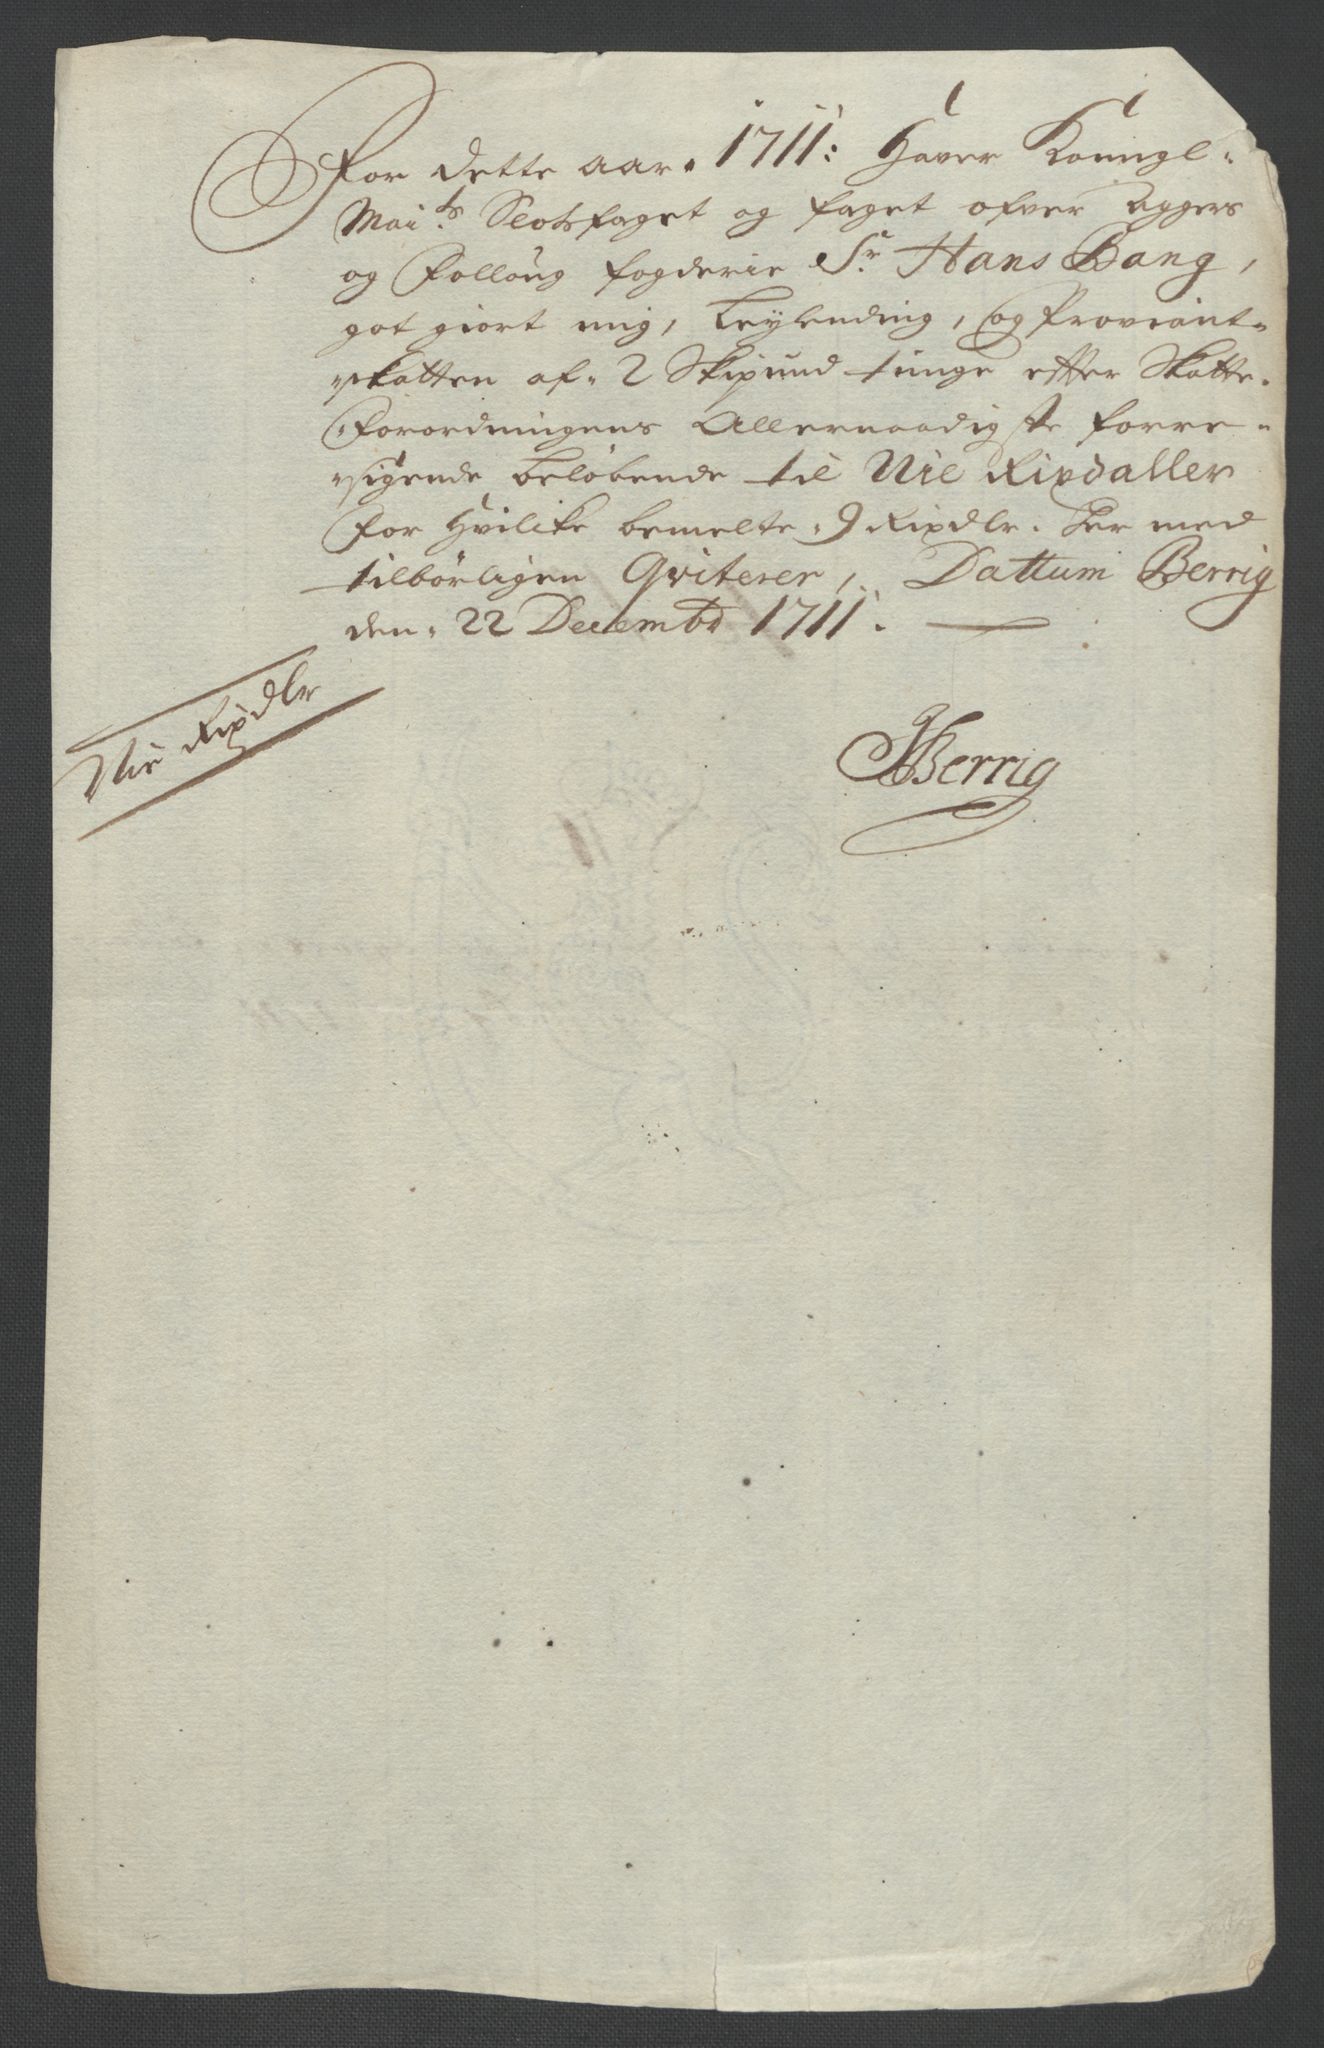 For dette aar. 1711: Haver Kongl.
Mai.ts Slotsfoget og foget ofver Aggers
og Folloug fogderie Sr. Hans Bang,
got giort mig, Leylending, og Proviant-
skatten af. 2 Skipund tunge efter Skatte-
Forordningens Allernaadigste forre-
sigende beløbende til Nie Rixdaller
for hvilke bemelte. 9 Rixdlr. her med
tilbørligen Qviterer, Dattum Berrig
den. 22 Decembr 1711.
Nie Rixdlr
Berrig